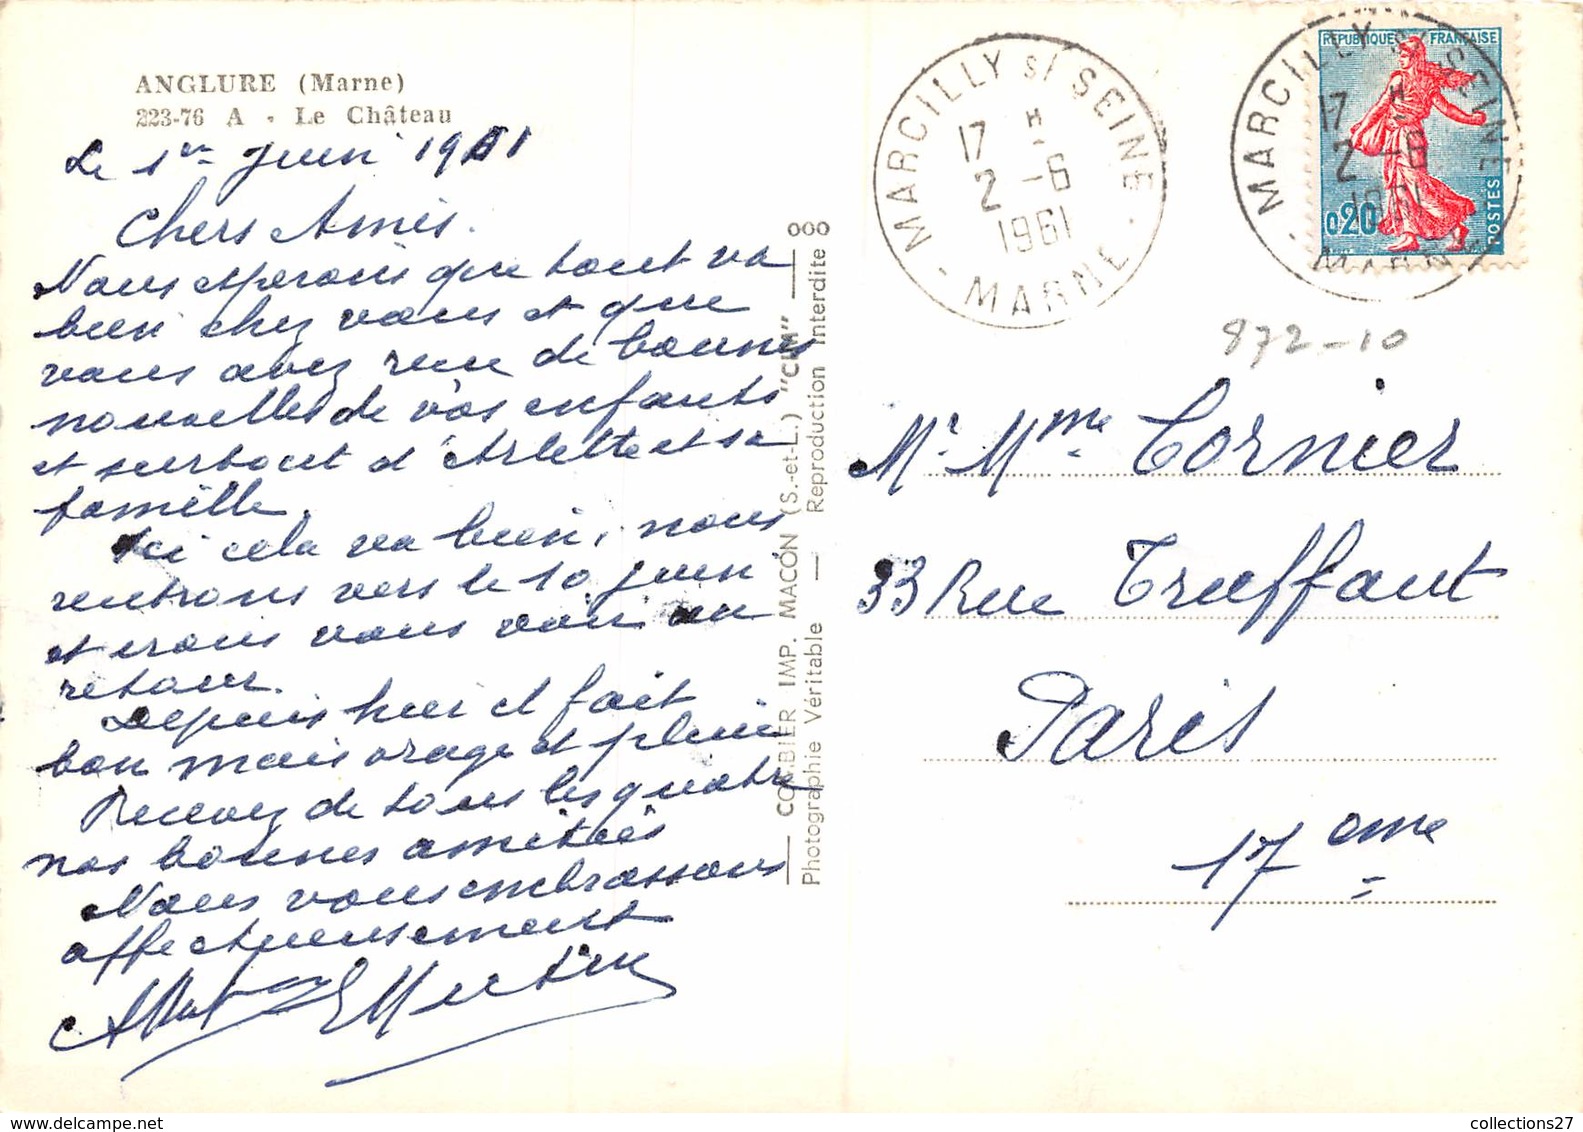 ANGLURE (Marne)
223-76 A - Le Château
Le 1er Juin 1961
Chers Amis.
Nous esperons que tout va
bien chez vous et que
vous avez recu de bonnes
nouvelles de vos enfants
et surtout d'Arlette et sa
famille.
Ici cela va bien, nous
rentrons vers le 10 juin
et irons vous voir au
retour.
Depuis hier il fait
bon mais orage et pluie
Recevez de tous les quatre
nos bonnes amitiés
Nous vous embrassons
affectueusement
COMBIER IMP. MACON (S.-et-L.) "CIM"
Photographie Véritable — Reproduction Interdite
MARCILLY S/ SEINE
17 H
2 -6
1961
MARNE
MARCILLY S/ SEINE
17 H
2 -6
1961
MARNE
REPUBLIQUE FRANÇAISE
0,20
POSTES
872-10
Mr Mme Cornier
33 Rue Truffaut
Paris
17 eme
collections27